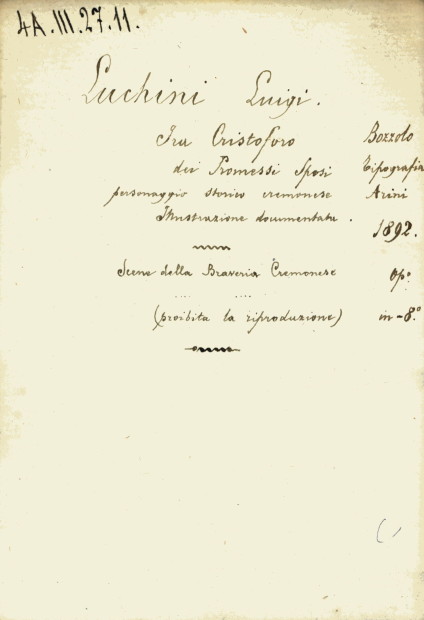 4A.III.27.11.
Luchini Luigi.
Fra Cristoforo
dei Promessi Sposi
personaggio storico cremonese
Illustrazione documentata.
Scene della Braveria Cremonese
(proibita la riproduzione)
Bozzolo
Tipografia
Arini
1892.
opº
in-8.º